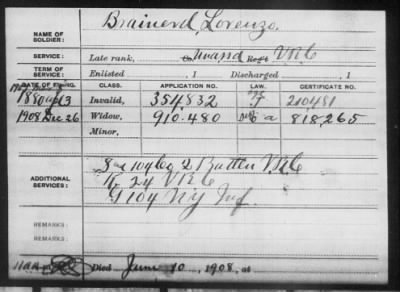 NAME OF SOLDIER: Brainerd, Lorenzo.
SERVICE: Late rank, Co. Unassd Reg't V.R.C
TERM OF SERVICE: Enlisted , 1 Discharged , 1
DATE OF FILING. CLASS. APPLICATION NO. LAW. CERTIFICATE NO.
1880 13 Invalid, 354,832 210481
1908 Dec 26 Widow, 910.480 a 818,265
Minor,
ADDITIONAL SERVICES: 109 Co 2 Battln V.R.C
K 24 V R C
G 104 N.Y. Inf.
REMARKS:
REMARKS:
Died June 10, 1908, at